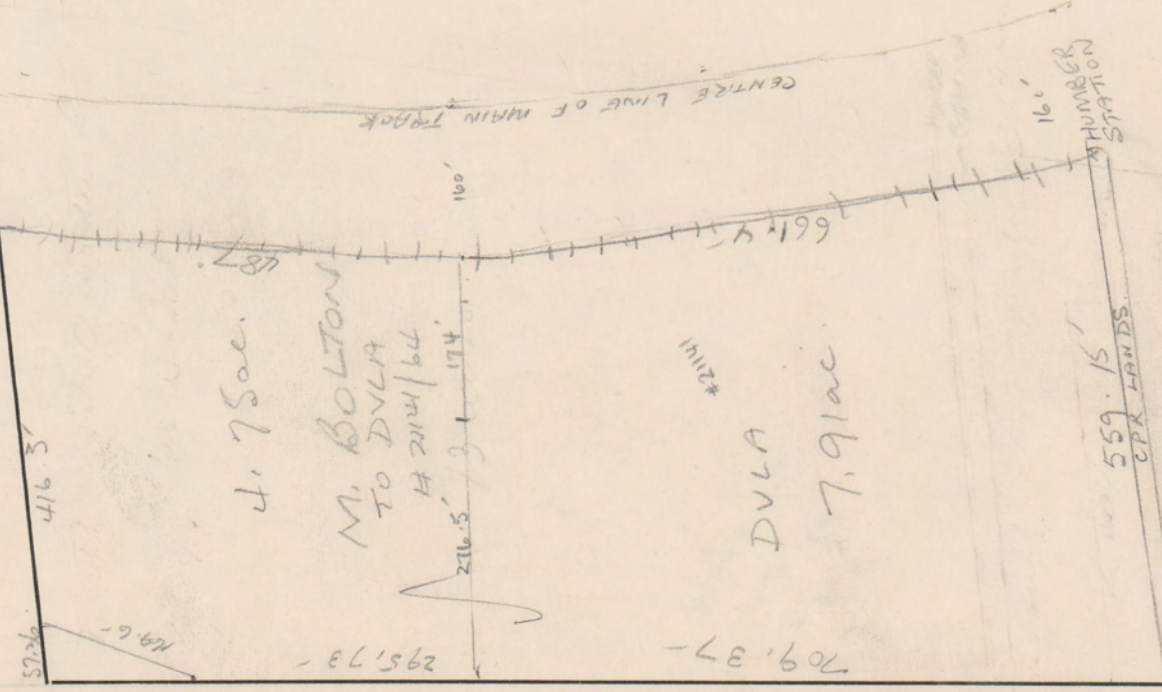 CENTRE LINE OF MAIN TRACK
160'
16'
HUMBER
STATION
487'
661.4'
416.3'
4.75ac.
M. BOLTON
TO DVLA
# 21141/64
174'
276.5'
#21141
DVLA
7.91ac.
559.15'
CPR LANDS.
57.26
295.73'
709.37'